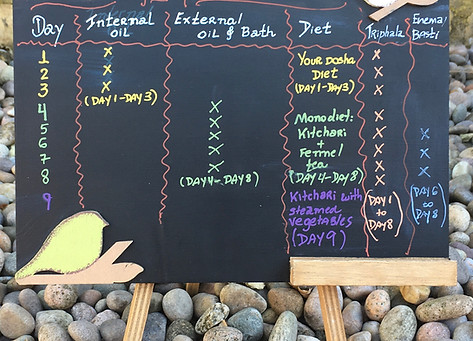 Day Internal oil External oil & Bath Diet Triphala Enema/ Basti
1 x Your Dosha x
2 x Diet x
3 x (Day1-Day3) x
(Day1-Day3)
4 x Monodiet: x
5 x Kitchari x
6 x + x x
7 x Fennel tea x x
8 x (Day4-Day8) x x
(Day4-Day8)
9 Kitchari with steamed vegetables (Day 9) (Day1 to Day8) (Day6 to Day8)